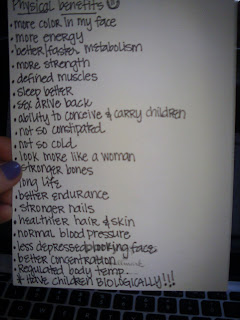 Physical benefits
• more color in my face
• more energy
• better/faster metabolism
• more strength
• defined muscles
• sleep better
• sex drive back
• ability to conceive & carry children
• not so constipated
• not so cold
• look more like a woman
• stronger bones
• long life
• better endurance
• stronger nails
• healthier hair & skin
• normal blood pressure
• less depressed looking face
• better concentration
• Regulated body temp.
* HAVE CHILDREN BIOLOGICALLY!!!